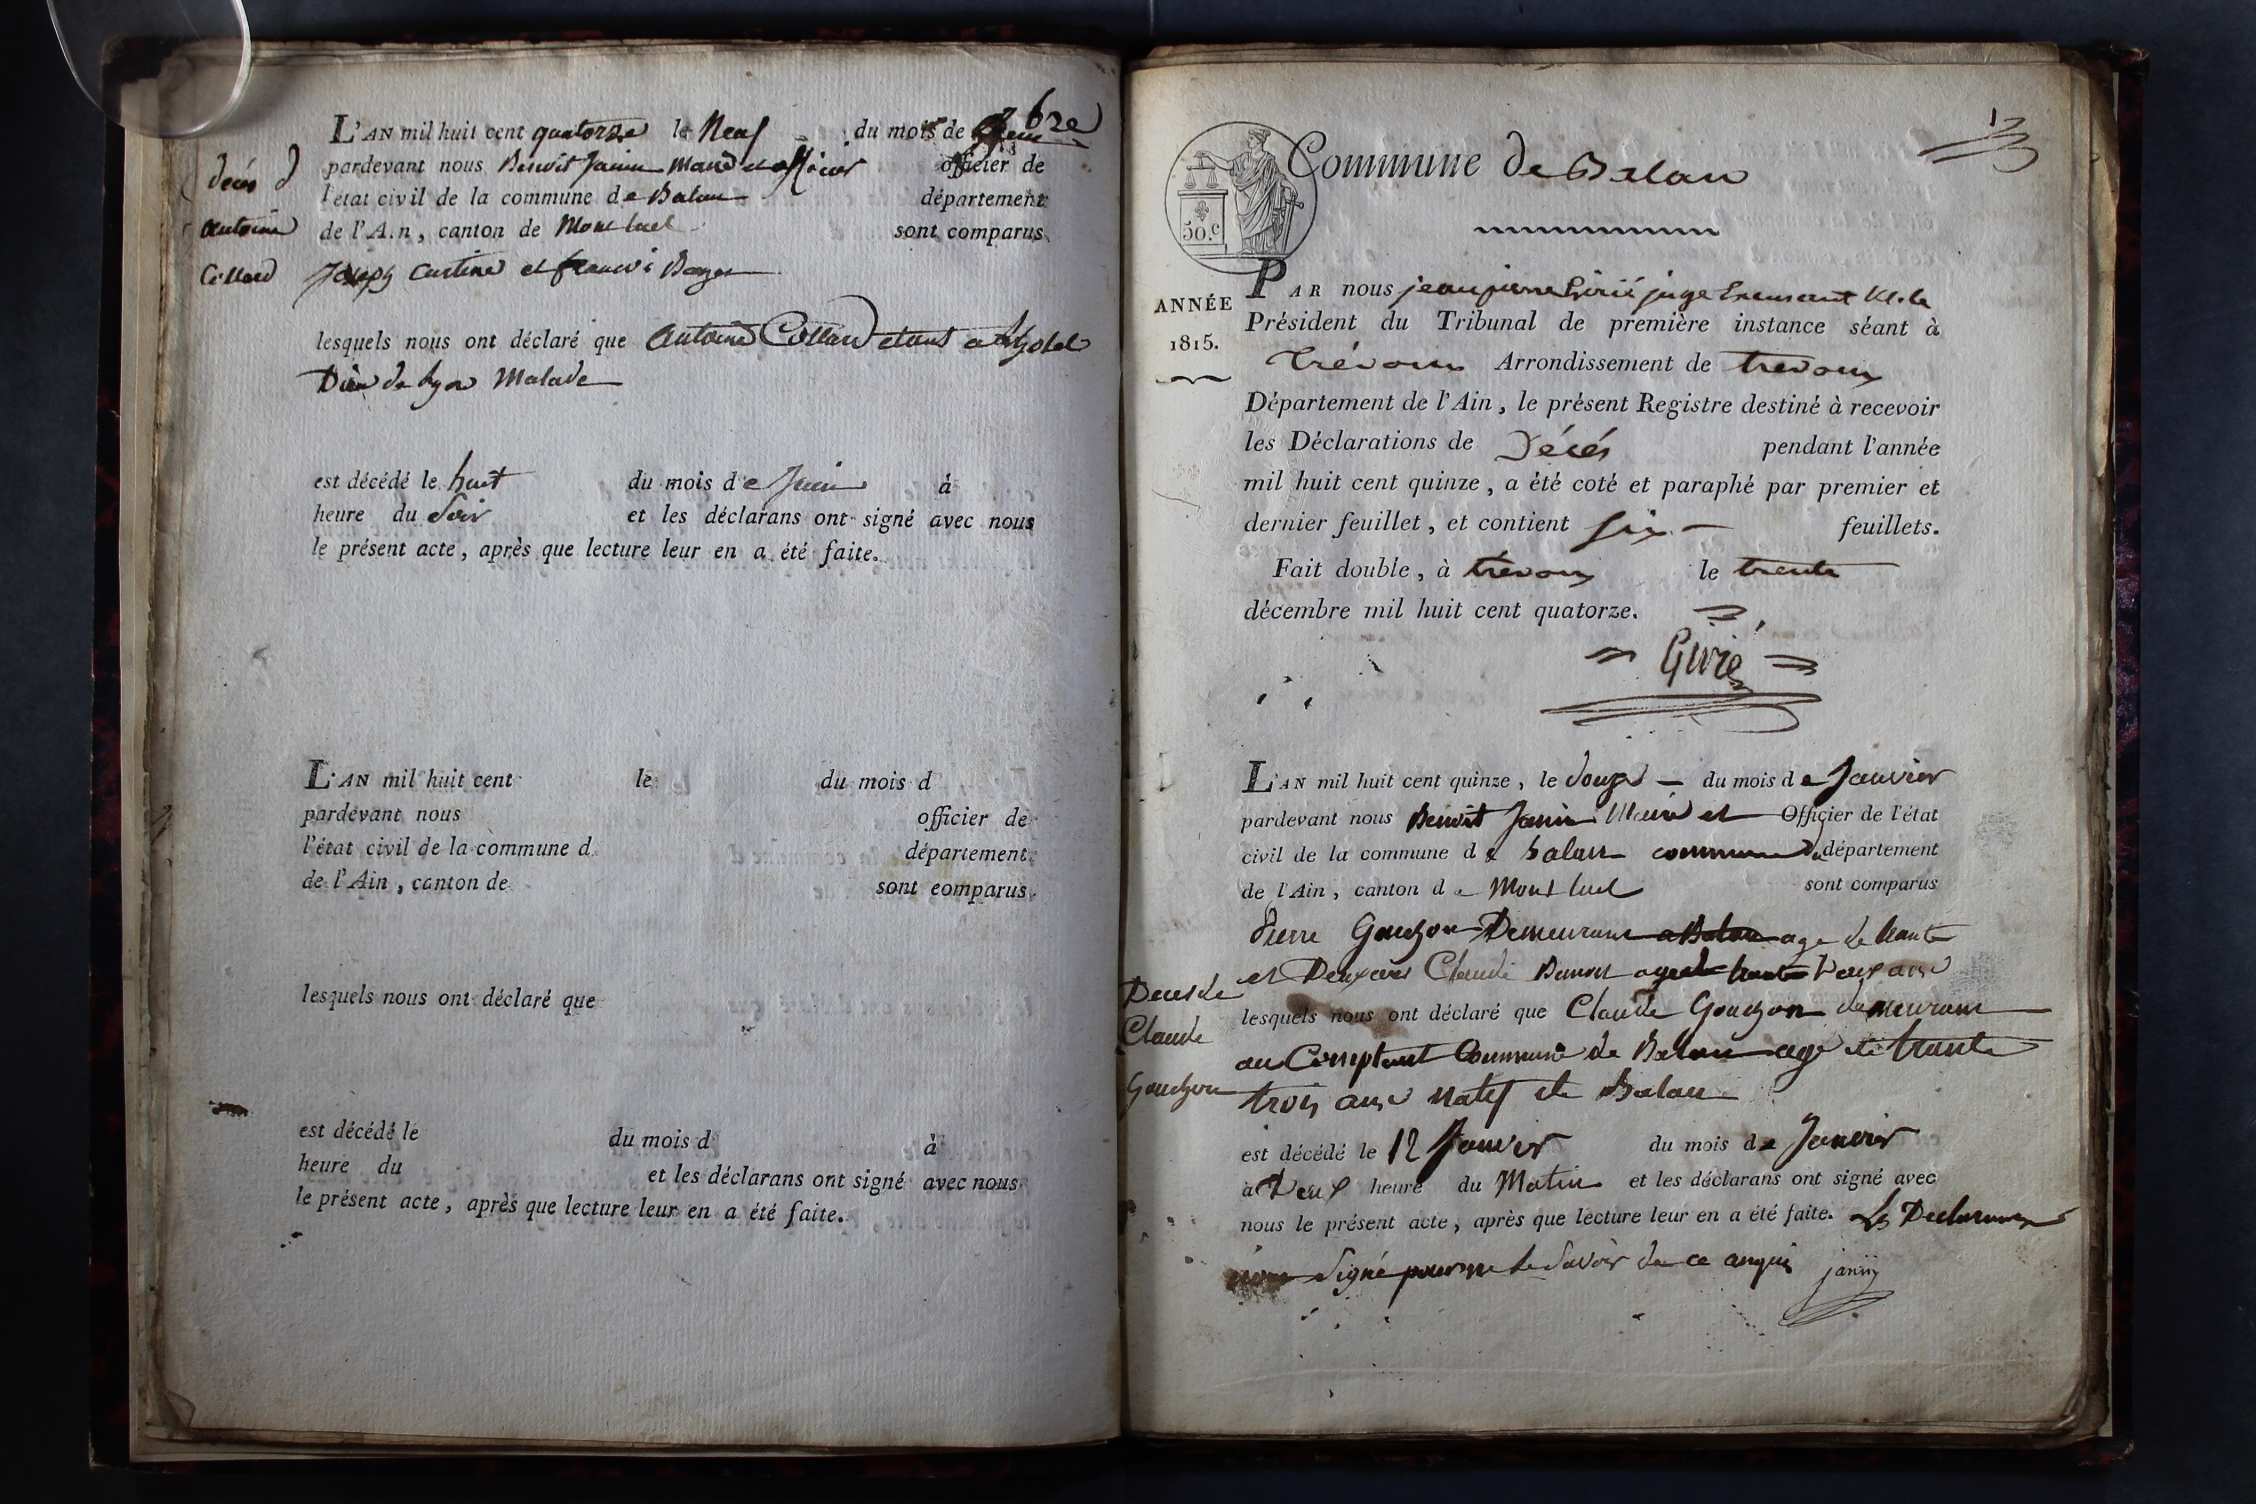 L'AN mil huit cent quatorze le Neuf du mois de 7bre
pardevant nous Benoit Janin Maire et officier officier de
l'état civil de la commune de Balan département
de l'Ain, canton de Montluel sont comparus
Joseph et
lesquels nous ont déclaré que Antoine Collard etant a Lhotel
Dieu de Lyon Malade
est décédé le huit du mois de Juin à
heure du Soir et les déclarans ont signé avec nous
le présent acte, après que lecture leur en a été faite.
décés d
Antoine
Collard
L'AN mil huit cent le du mois d
pardevant nous officier de
l'état civil de la commune d département
de l'Ain, canton de sont comparus
lesquels nous ont déclaré que
est décédé le du mois d à
heure du et les déclarans ont signé avec nous
le présent acte, après que lecture leur en a été faite.
Commune de Balan
50.c
ANNÉE
1815.
PAR nous jean pierre Girié juge
Président du Tribunal de première instance séant à
trévoux Arrondissement de trevoux
Département de l'Ain, le présent Registre destiné à recevoir
les Déclarations de Décés pendant l'année
mil huit cent quinze, a été coté et paraphé par premier et
dernier feuillet, et contient six feuillets.
Fait double, à trévoux le trente
décembre mil huit cent quatorze.
Girié
L'AN mil huit cent quinze, le douze du mois de Janvier
pardevant nous Benoit Janin Maire et Officier de l'état
civil de la commune de balan commune département
de l'Ain, canton de Montluel sont comparus
Pierre Gouchon Demeurant a Balan age de trante
et Deux ans Claude Benoit age de trante Neuf ans
lesquels nous ont déclaré que Claude Gouchon demeurant
au Comptant Commune de Balan age de trante
trois ans natif de Balan
est décédé le 12 Janvier du mois de Janvier
à Neuf heure du Matin et les déclarans ont signé avec
nous le présent acte, après que lecture leur en a été faite. Les Declarants
non signé pour ne le savoir de ce anquis janin
Deces de
Claude
Gouchon